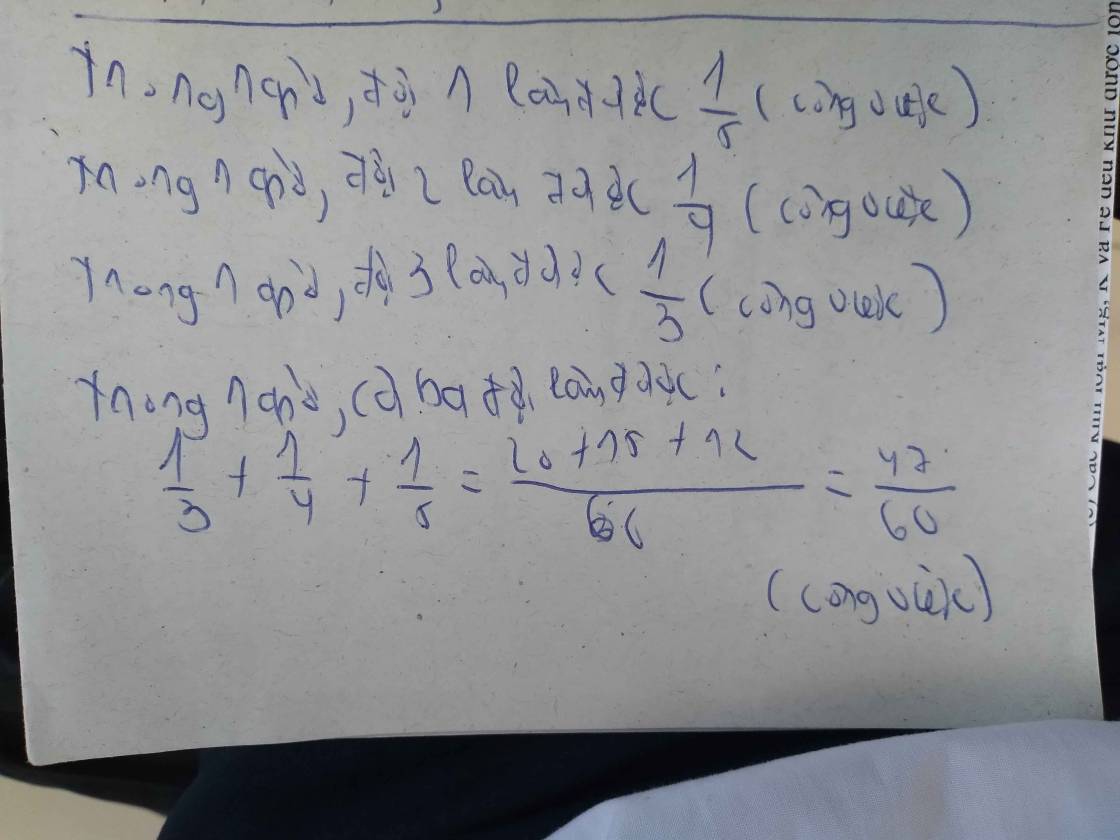 Trong 1 giờ, đội 1 làm được 1/5 (công việc)
Trong 1 giờ, đội 2 làm được 1/4 (công việc)
Trong 1 giờ, đội 3 làm được 1/3 (công việc)
Trong 1 giờ, cả ba đội làm được:
1/3 + 1/4 + 1/5 = (20 + 15 + 12)/60 = 47/60
(công việc)